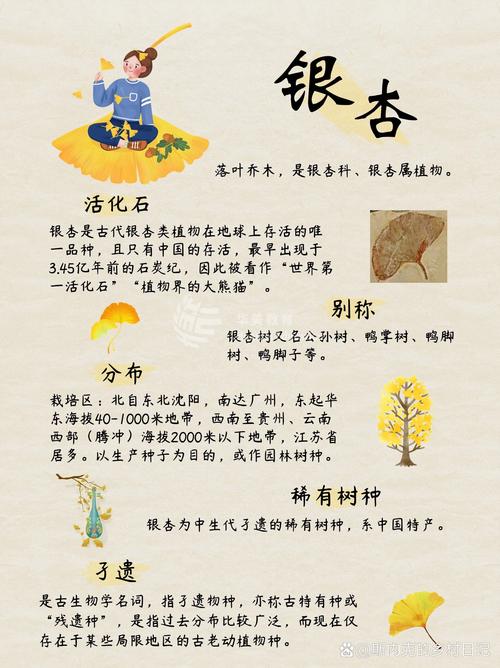 银杏
落叶乔木，是银杏科、银杏属植物。
活化石
银杏是古代银杏类植物在地球上存活的唯
一品种，且只有中国的存活，最早出现于
3.45亿年前的石炭纪，因此被看作“世界第
一活化石”“植物界的大熊猫”。
别称
银杏树又名公孙树、鸭掌树、鸭脚
树、鸭脚子等。
分布
栽培区：北自东北沈阳，南达广州，东起华
东海拔40-1000米地带，西南至贵州、云南
西部（腾冲）海拔2000米以下地带，江苏省
居多。以生产种子为目的，或作园林树种。
稀有树种
银杏为中生代孑遗的稀有树种，系中国特产。
孑遗
是古生物学名词，指孑遗物种，亦称古特有种或
“残遗种”，是指过去分布比较广泛，而现在仅
存在于某些局限地区的古老动植物种。